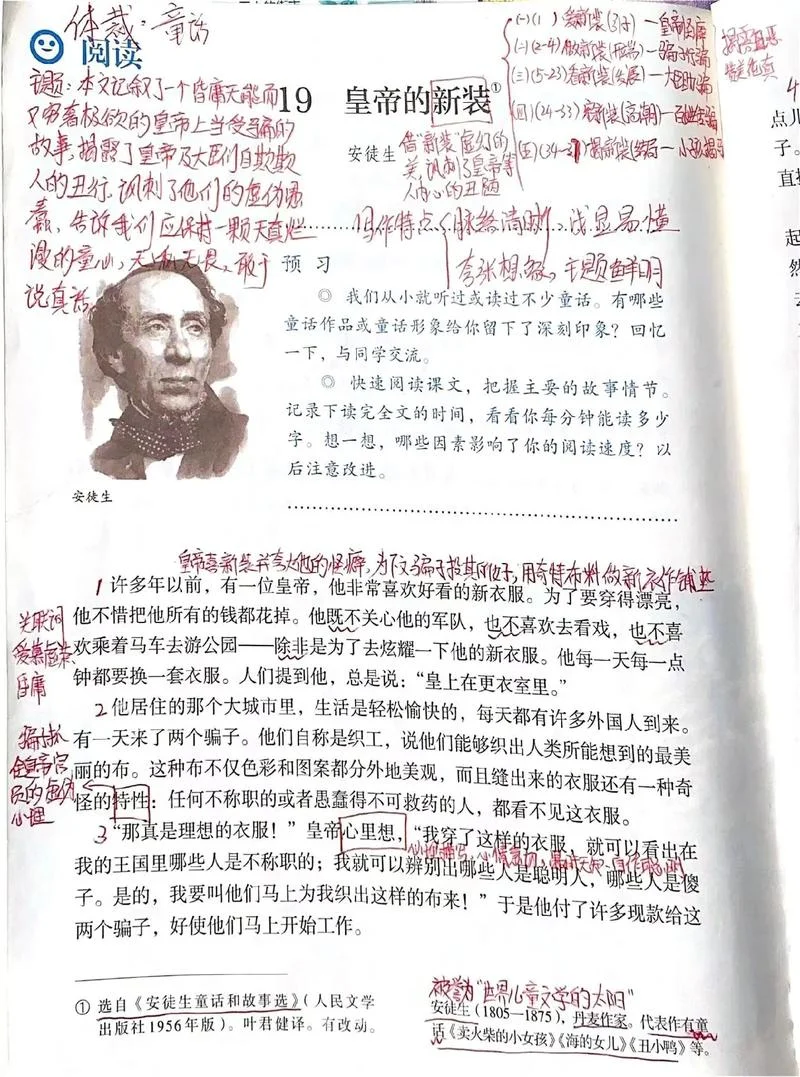 体裁：童话
阅读
主题：本文记叙了一个昏庸无能而
又穷奢极欲的皇帝上当受骗的
故事，揭露了皇帝及大臣们自欺欺
人的丑行，讽刺了他们的虚伪愚
蠢，告诉我们应保持一颗天真烂
漫的童心，无私无畏，敢于
说真话。
19 皇帝的新装①
安徒生
借"新装"虚幻的
美讽刺了皇帝等
人内心的丑陋
(一)(1) 爱新装(开端)—皇帝
(二)(2-4) 做新装
(三)(5-23)看新装(发展)—
(四)(24-33) (高潮)—
(五)(34- 揭新装(结局—小孩揭
写作特点 脉络清晰，浅显易懂
夸张想象，主题鲜明
预习
◎ 我们从小就听过或读过不少童话。有哪些
童话作品或童话形象给你留下了深刻印象？回忆
一下，与同学交流。
◎ 快速阅读课文，把握主要的故事情节。
记录下读完全文的时间，看看你每分钟能读多少
字。想一想，哪些因素影响了你的阅读速度？以
后注意改进。
安徒生
皇帝喜新装并夸大他的怪癖，为下文骗子投其所好，用奇特布料做新衣作铺垫
1 许多年以前，有一位皇帝，他非常喜欢好看的新衣服。为了要穿得漂亮，
他不惜把他所有的钱都花掉。他既不关心他的军队，也不喜欢去看戏，也不喜
欢乘着马车去游公园——除非是为了去炫耀一下他的新衣服。他每一天每一点
钟都要换一套衣服。人们提到他，总是说：“皇上在更衣室里。”
关联词
爱慕虚荣
昏庸
2 他居住的那个大城市里，生活是轻松愉快的，每天都有许多外国人到来。
有一天来了两个骗子。他们自称是织工，说他们能够织出人类所能想到的最美
丽的布。这种布不仅色彩和图案都分外地美观，而且缝出来的衣服还有一种奇
怪的特性：任何不称职的或者愚蠢得不可救药的人，都看不见这衣服。
员的虚伪
心理
3 “那真是理想的衣服！”皇帝心里想，“我穿了这样的衣服，就可以看出在
我的王国里哪些人是不称职的；我就可以辨别出哪些人是聪明人，哪些人是傻
子。是的，我要叫他们马上为我织出这样的布来！”于是他付了许多现款给这
两个骗子，好使他们马上开始工作。
心理描写
① 选自《安徒生童话和故事选》（人民文学
出版社1956年版）。叶君健译。有改动。
被誉为"世界儿童文学的太阳"
安徒生（1805—1875），丹麦作家。代表作有童
话《卖火柴的小女孩》《海的女儿》《丑小鸭》等。
点儿
子。
直
起
然
去